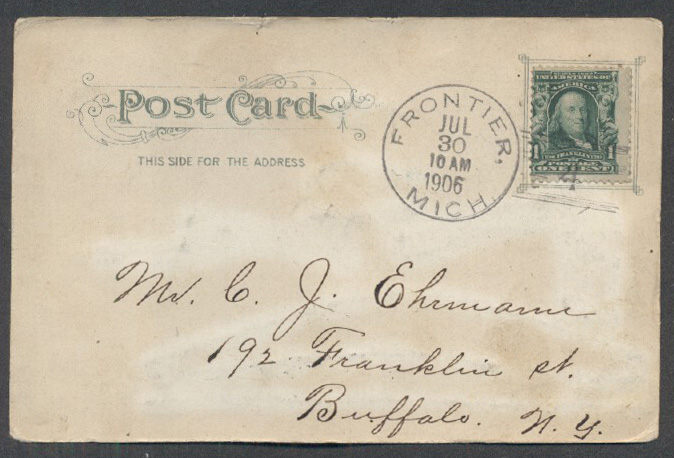 Post Card
THIS SIDE FOR THE ADDRESS
FRONTIER,
JUL
30
10 AM
1906
MICH.
UNITED STATES OF
AMERICA
1 1
ONE CENT
Mr. C. J. Ehrmann
192 Franklin st.
Buffalo. N. Y.